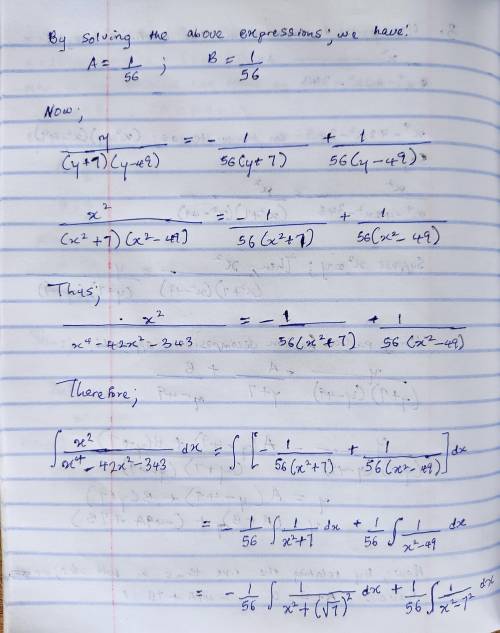 By solving the above expressions; we have:
A = 1/56 ; B = 1/56
Now;
y/((y+7)(y-49)) = - 1/(56(y+7)) + 1/(56(y-49))
x²/((x²+7)(x²-49)) = - 1/(56(x²+7)) + 1/(56(x²-49))
Thus;
x²/(x⁴-42x²-343) = - 1/(56(x²+7)) + 1/(56(x²-49))
Therefore;
∫ x²/(x⁴-42x²-343) dx = ∫ [- 1/(56(x²+7)) + 1/(56(x²-49))] dx
= - 1/56 ∫ 1/(x²+7) dx + 1/56 ∫ 1/(x²-49) dx
= - 1/56 ∫ 1/(x²+(√7)²) dx + 1/56 ∫ 1/(x²-7²) dx